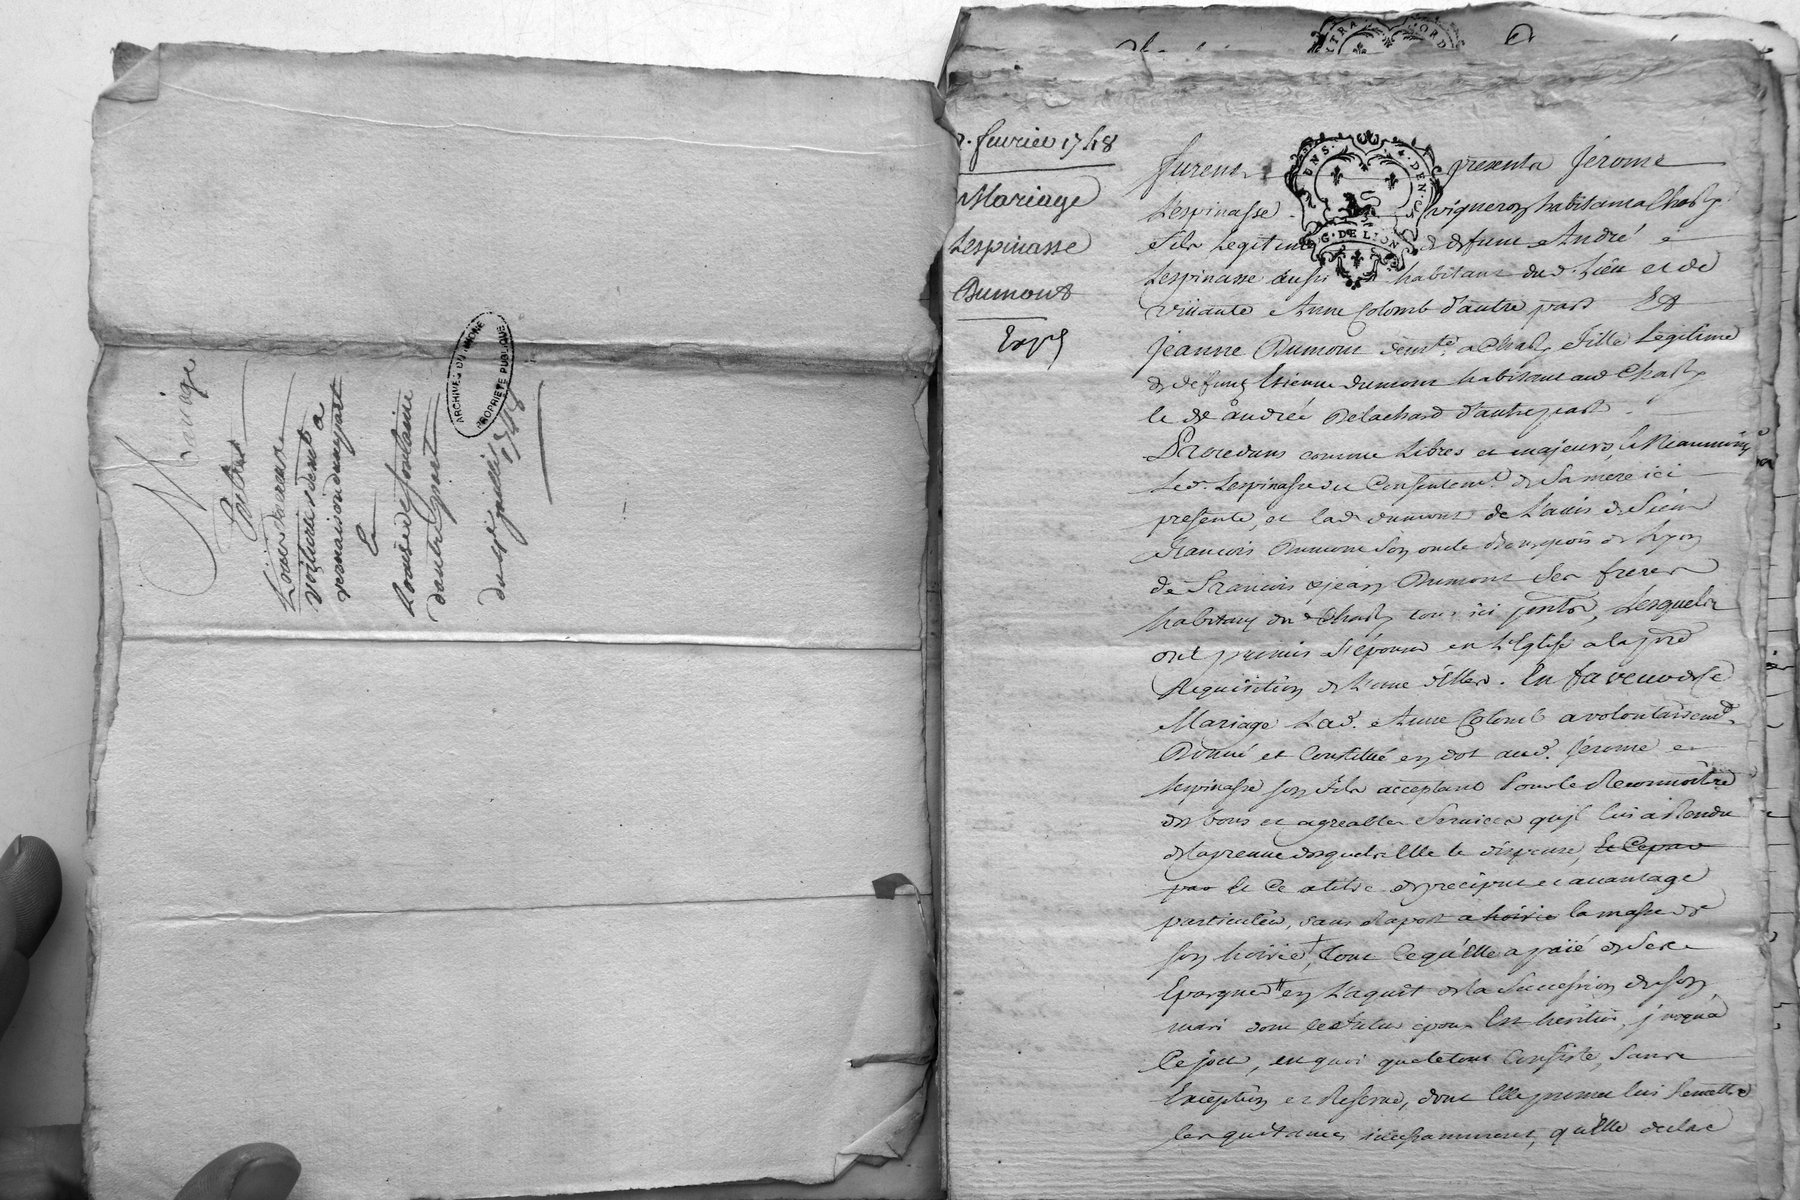 Mariage
Entre
Louis
voiturier demt a
vernaison d'une part
Et
Louise defontaine
d'autre part
du 9e juillet
1748
ARCHIVES DU RHONE
PROPRIÉTÉ PUBLIQUE
fevrier 1748
Mariage
Lespinasse
Dumont
Expé
GÉNÉRALITÉ
G. DE LION
furent presents Jerome
Lespinasse vigneron habitant a Charly
fils Legitime de defunt André
Lespinasse aussi habitant dud. Lieu et de
vivante Anne Colomb d'autre part Et
Jeanne Dumont demte a Charly fille Legitime
de defunt Etienne dumont habitant aud Charly
et de andrée Delachard d'autre part
Procedans comme Libres et majeurs, & Neanmoins
Led. Lespinasse du Consentemt de Sa mere ici
presente, et lad dumont de L'avis de Sieur
francois Dumont son oncle Bourgeois de Lyon
de francois & jean Dumont Ses freres
habitans dud Charly tous ici pnts, Lesquels
ont promis s'épouser en L'Eglise a la pre
Requisition de L'une d'Elles. En faveur de Ce
Mariage Lad. Anne Colomb a volontairemt
Donné et Constitué en dot aud. Jerome
Lespinasse son fils acceptant Pour le Reconnoitre
des bons et agreables Services qu'il lui a Rendu
de la preuve desquels Elle le dispense, Et Ce par
par Et Ce a titre de preciput et avantage
particulier, sans Raport a hoirie la masse de
son hoirie, tout Ce qu'Elle a paié de Ses
Epargnes en L'aquit de la Succession de son
mari dont le futur epoux Est heritier, jusqu'a
Ce jour, en quoi que le tout Consiste, Sans
Exception et Reserve, dont Elle promet lui Remettre
les quitances incessamment, qu'Elle declare